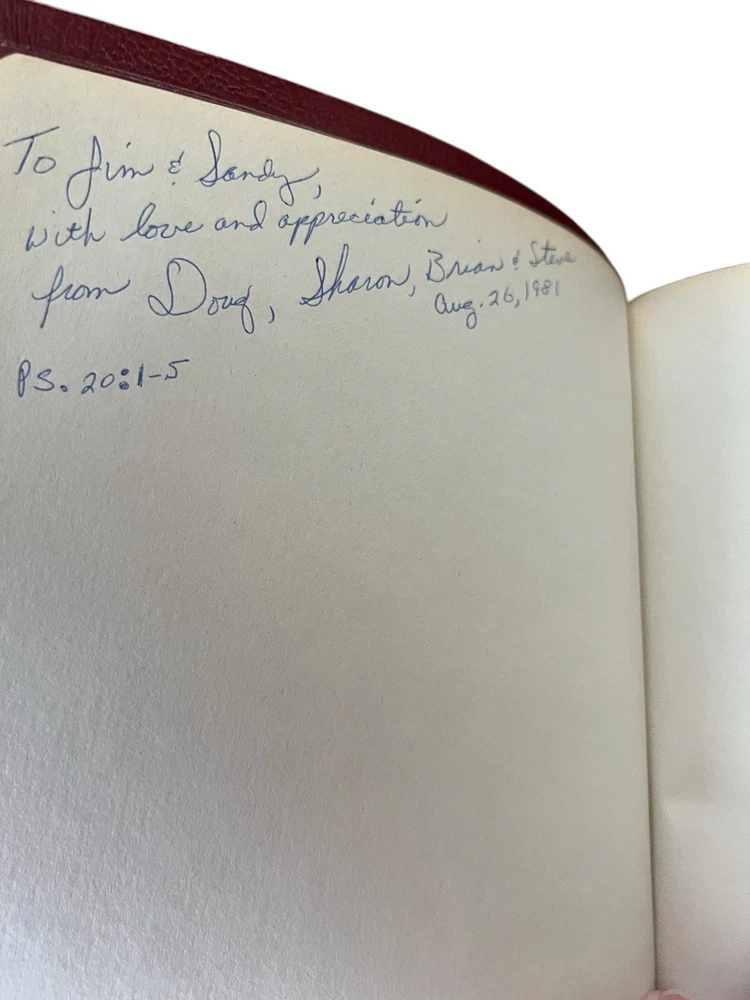 To Jim & Sandy,
with love and appreciation
from Doug, Sharon, Brian & Steve
Aug. 26, 1981
PS. 20:1-5